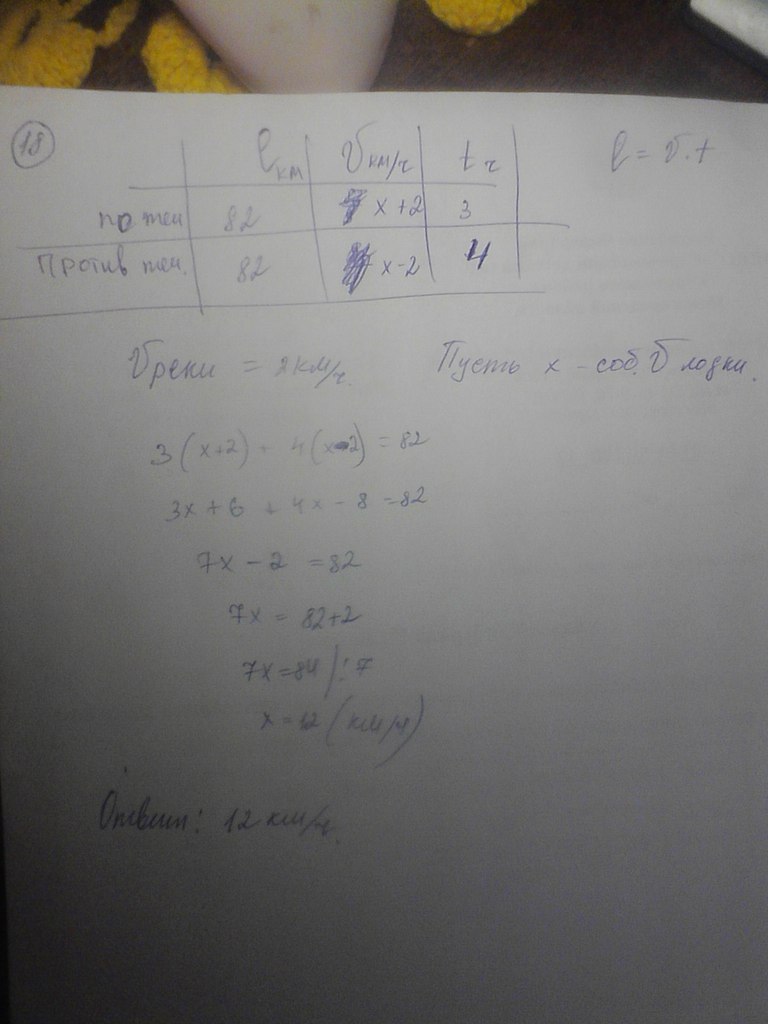 18
l км v км/ч t ч l = v · t
по теч 82 x+2 3
Против теч. 82 x-2 4
v реки = 2 км/ч. Пусть x - соб. v лодки.
3(x+2) + 4(x-2) = 82
3x + 6 + 4x - 8 = 82
7x - 2 = 82
7x = 82+2
7x = 84 | : 7
x = 12 (км/ч)
Ответ: 12 км/ч.